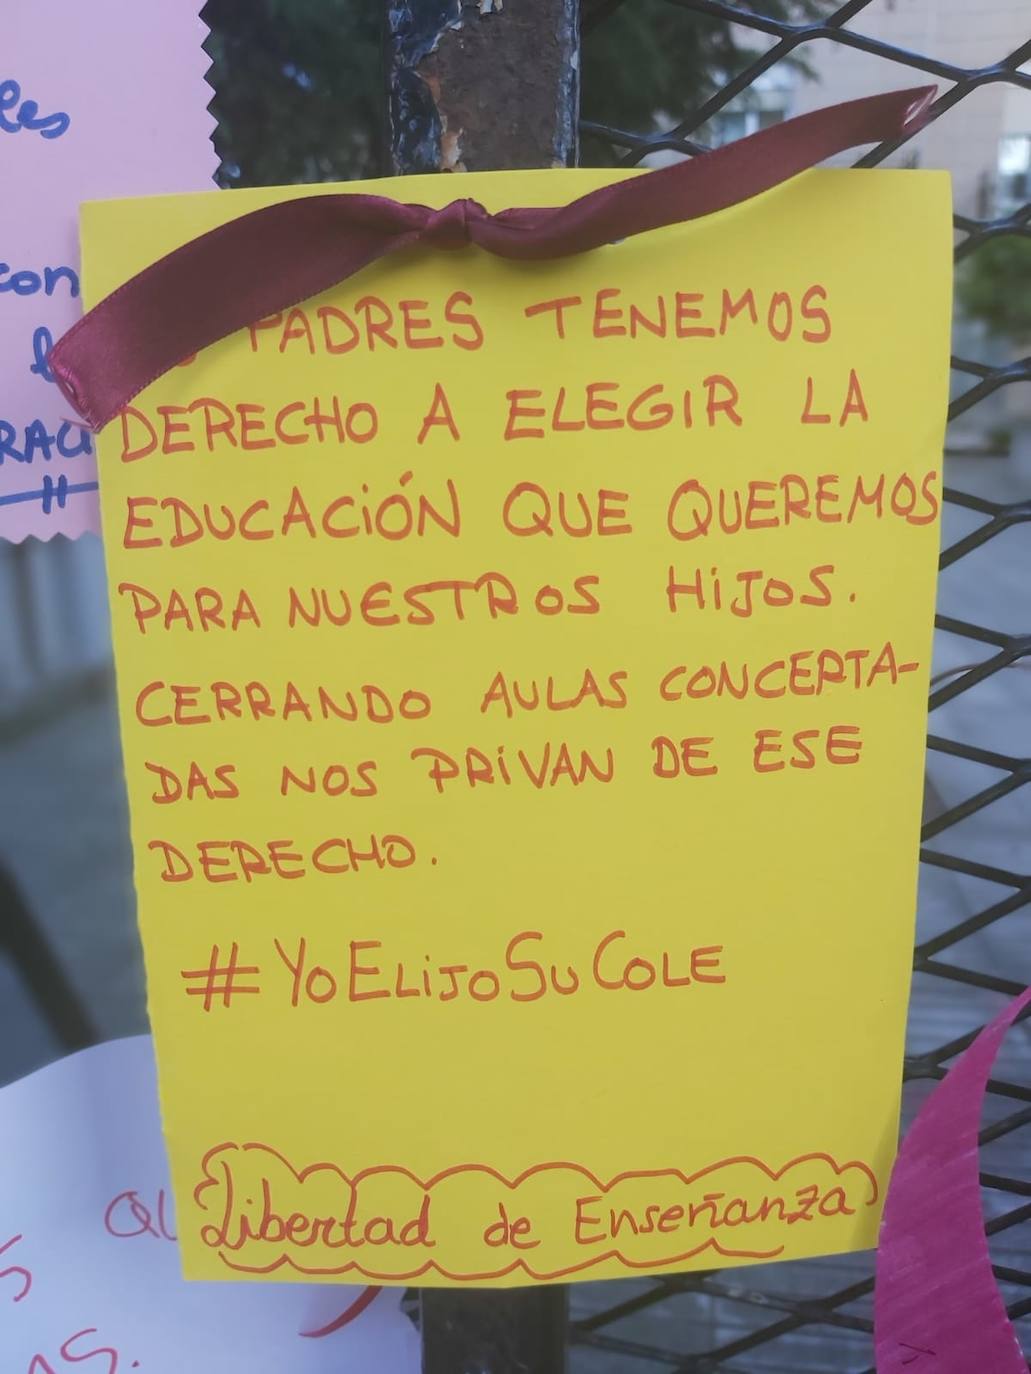 les
con
RACI
PADRES TENEMOS
DERECHO A ELEGIR LA
EDUCACIÓN QUE QUEREMOS
PARA NUESTROS HIJOS.
CERRANDO AULAS CONCERTA-
DAS NOS PRIVAN DE ESE
DERECHO.
#YoELIJOSuCOLE
Libertad de Enseñanza
al
s
as.